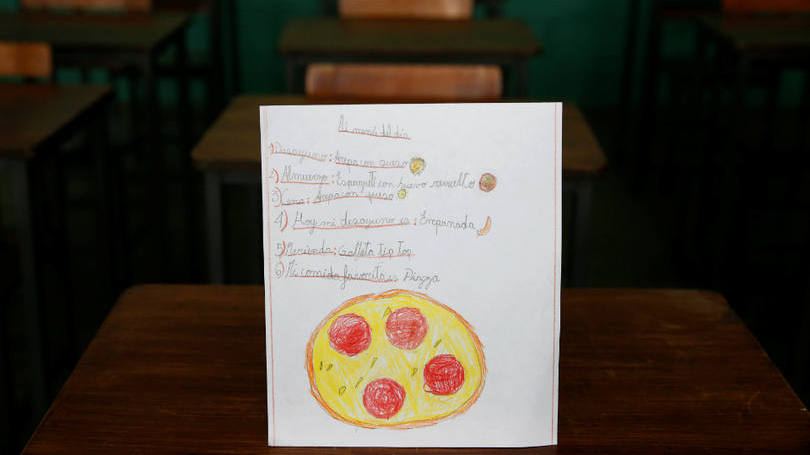 Mi menú del día
1) Desayuno: Arepa con queso
2) Almuerzo: Espagueti con huevo revuelto
3) Cena: Arepa con queso
4) Hoy mi desayuno es: Empanada
5) Merienda: Galleta tip top
6) Mi comida favorita es Pingza